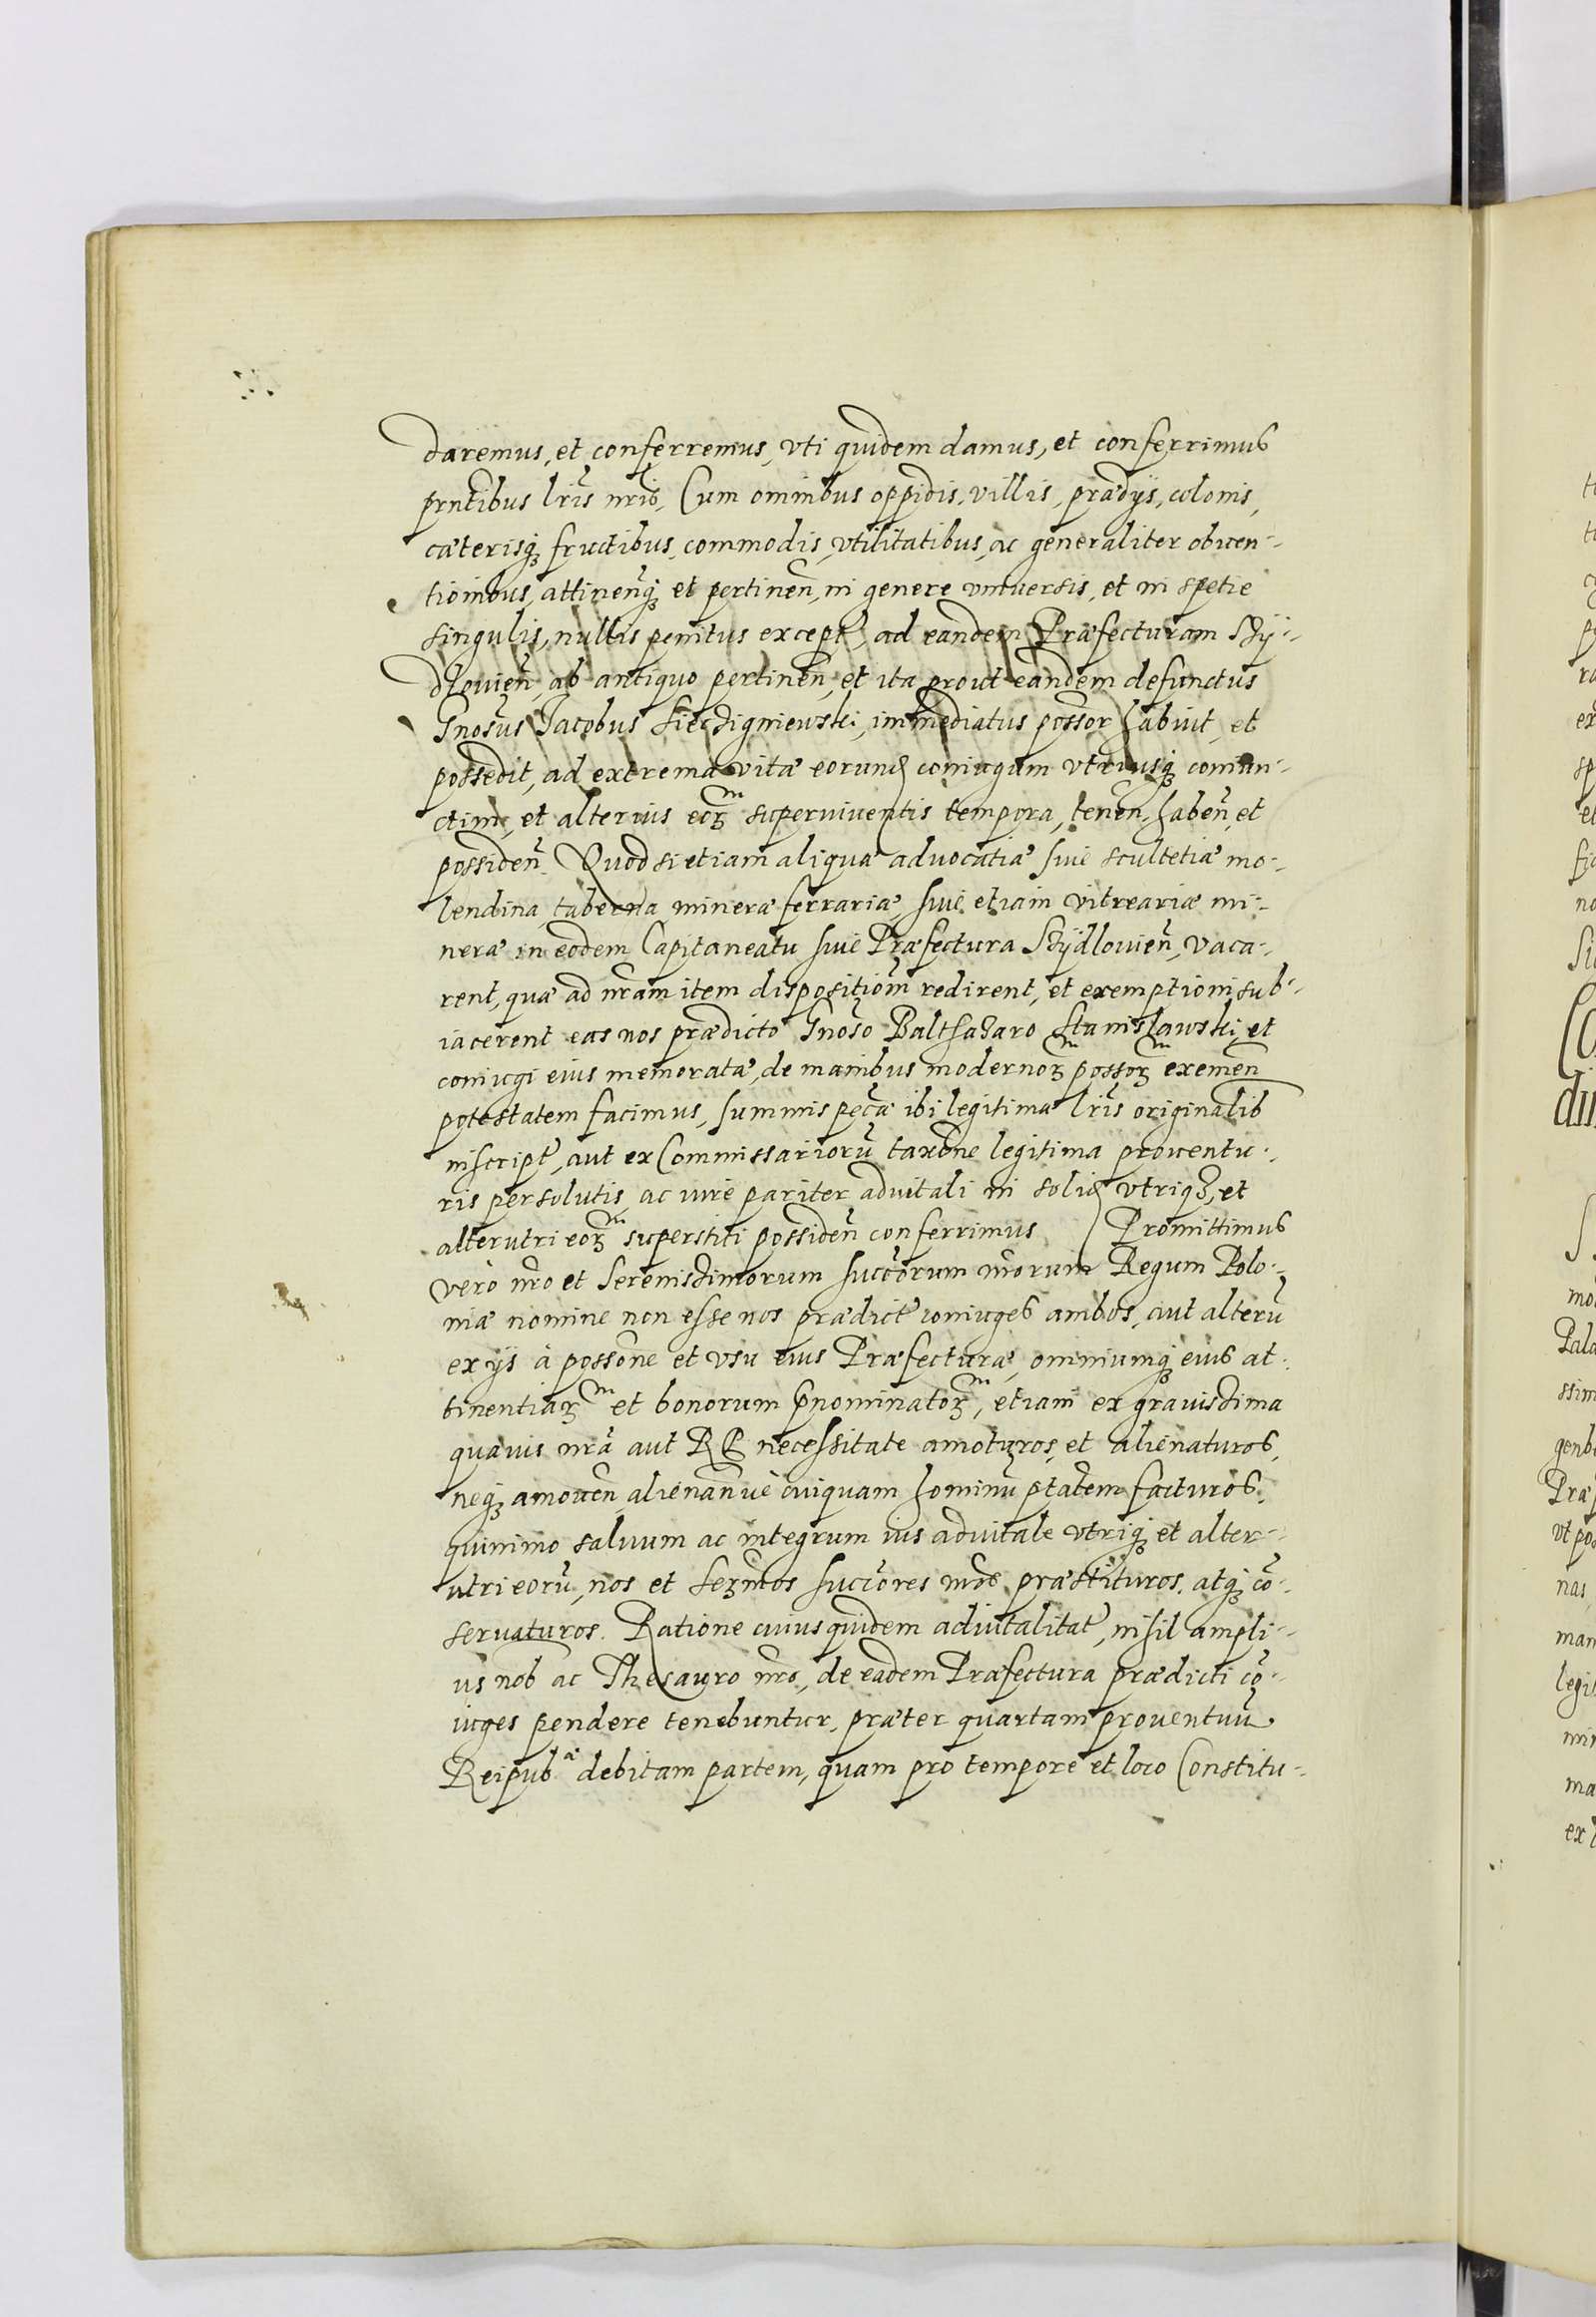 daremus, et conferremus, vti quidem damus, et conferrimus
prntibus lris nris, Cum omnibus oppidis, villis, prædijs, colonis,
cæterisq; fructibus, commodis, vtilitatibus, ac generaliter obuen-
tionibus, attinen̄q; et pertinen̄, in genere vniuersis, et in spetie
singulis, nullis penitus except, ad eandem Præfecturam Szÿ-
dlouien̄, ab antiquo pertinen̄, et ita prout eandem defunctus
Gnosus Jacobus Siecÿgniewski, immediatus possor habuit, et
possedit, ad extrema vitæ eorund coniugum vtriusq; coniun-
ctim, et alterius eorꝫ superuiuentis tempora, tenen̄, haben̄, et
possiden̄. Quod si etiam aliquæ aduocatiæ siue scultetiæ mo-
lendina, taberna, mineræ ferrariæ, siue etiam vitreariæ mi-
neræ in eodem Capitaneatu siue Præfectura Szÿdlouien̄, vaca-
rent, quæ ad nram item dispositiom redirent, et exemptioni sub-
iacerent eas nos prædicto Gnoso Balthazaro Stanislawski, et
coniugi eius memoratæ, de manibus modernorꝫ possorꝫ exemen̄
potestatem facimus, summis pecæ ibi legitima lris originalib
inscript, aut ex Commissariorū taxone legitima prouentu-
ris persolutis, ac iure pariter aduitali in solid vtriqꝫ, et
alterutri eorꝫ superstiti possiden̄ conferrimus Promittimus
vero nro et Serenissimorum succorum nrorum Regum Polo-
niæ nomine non esse nos prædict coniuges ambos, aut alterū
ex ijs à possone et vsu eius Præfecturæ, omniumq; eius at-
tinentiarꝫ et bonorum pnominatorꝫ, etiam ex grauissima
quauis nra aut RP necessitate amoturos, et alienaturos,
neq; amouen̄ alienan̄ue cuiquam hominū ptatem facturos,
quinimo saluum ac integrum ius aduitale vtriq; et alter-
utri eorū, nos et Serꝫmos succores nros præstituros, atq; cō-
seruaturos. Ratione cuius quidem aduitalitat, nihil ampli-
us nob ac Thesauro nro, de eadem Præfectura prædicti cō-
iuges pendere tenebuntur, præter quartam prouentuū
Reipubᵃ debitam partem, quam pro tempore et loco Constitu-